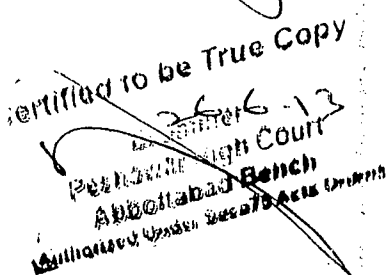 Certified to be True Copy
26-6-13
Examiner
Peshawar High Court
Abbottabad Bench
Authorised Under